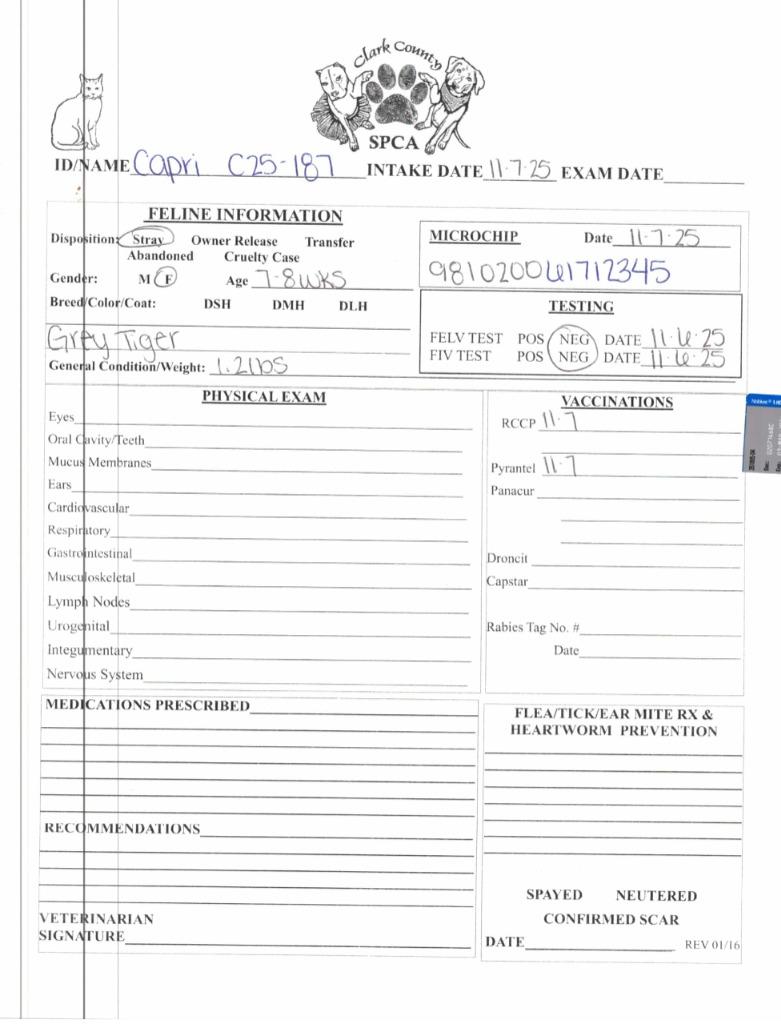 Clark County
SPCA
ID/NAME Capri C25-187 INTAKE DATE 11·7·25 EXAM DATE
FELINE INFORMATION
Disposition: Stray Owner Release Transfer
Abandoned Cruelty Case
Gender: M F Age 7-8wks
Breed/Color/Coat: DSH DMH DLH
Grey Tiger
General Condition/Weight: 1.2lbs
MICROCHIP Date 11·7·25
981020061712345
TESTING
FELV TEST POS NEG DATE 11·6·25
FIV TEST POS NEG DATE 11·6·25
PHYSICAL EXAM
Eyes
Oral Cavity/Teeth
Mucus Membranes
Ears
Cardiovascular
Respiratory
Gastrointestinal
Musculoskeletal
Lymph Nodes
Urogenital
Integumentary
Nervous System
VACCINATIONS
RCCP 11·7
Pyrantel 11·7
Panacur
Droncit
Capstar
Rabies Tag No. #
Date
MEDICATIONS PRESCRIBED
RECOMMENDATIONS
VETERINARIAN
SIGNATURE
FLEA/TICK/EAR MITE RX &
HEARTWORM PREVENTION
SPAYED NEUTERED
CONFIRMED SCAR
DATE REV 01/16